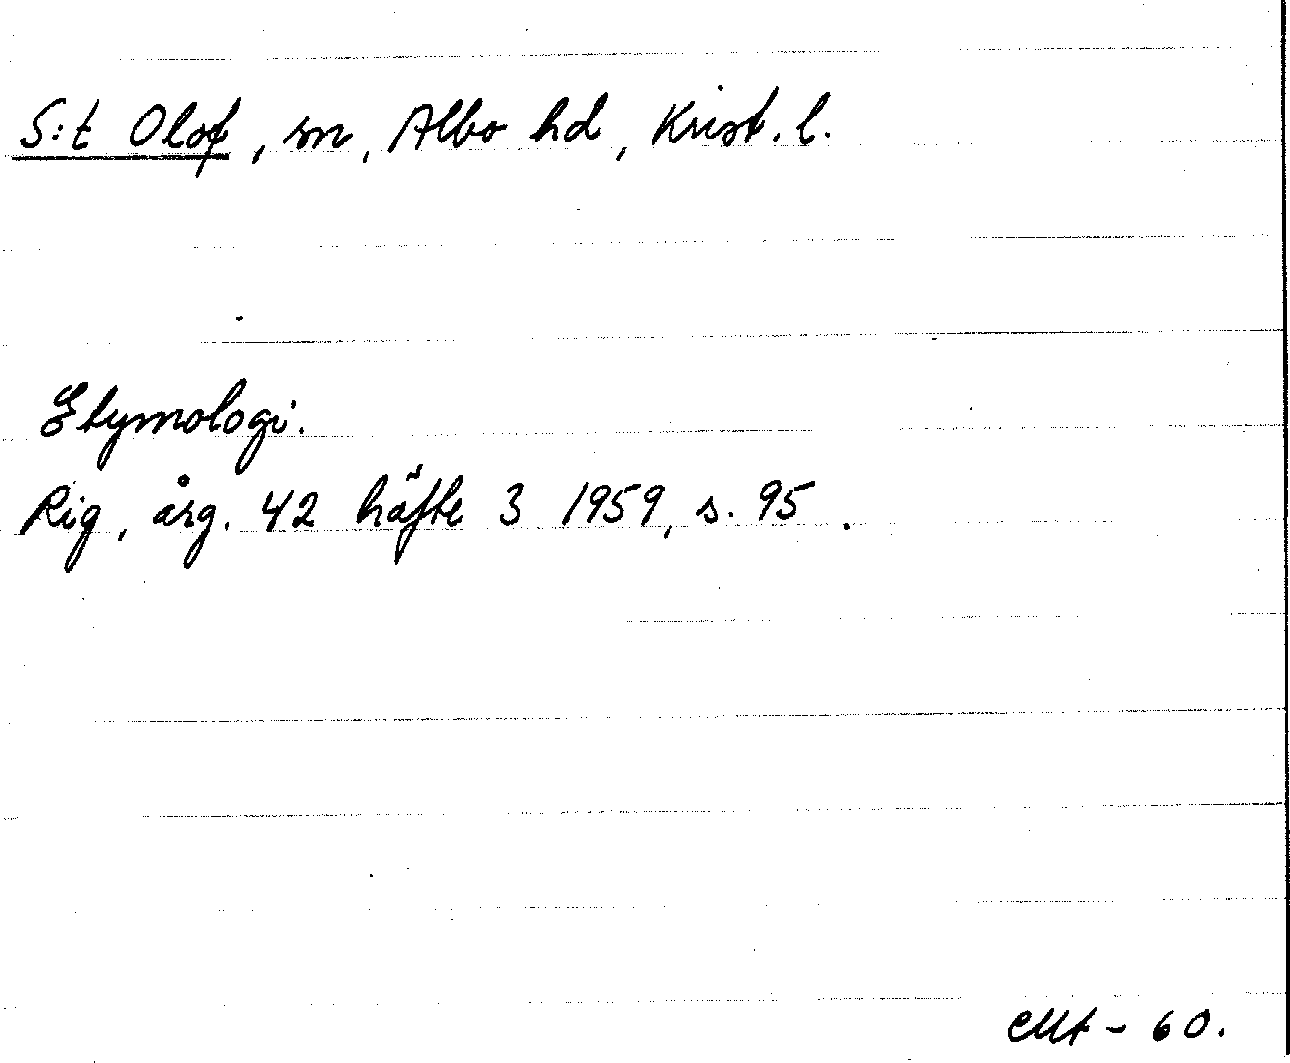 S:t Olof, sn, Albo hd, Krist. l.
Etymologi.
Rig, årg. 42 häfte 3 1959, s. 95.
- 60.